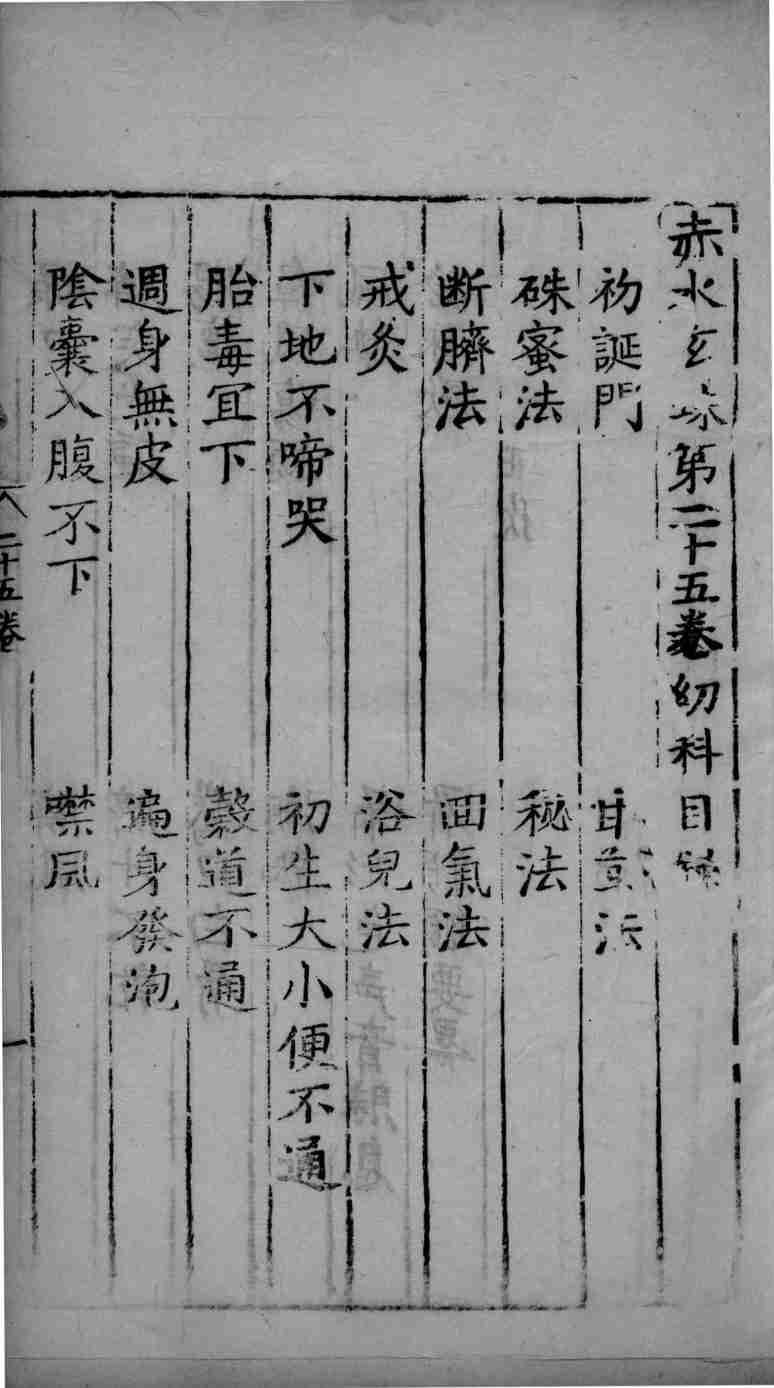 赤水玄珠第二十五卷幼科目録
初誕門　甘草法
硃蜜法　秘法
断臍法　回氣法
戒灸　浴兒法
下地不啼哭　初生大小便不通
胎毒宜下　穀道不通
週身無皮　遍身發泡
陰囊入腹不下　噤風
二十五卷
一